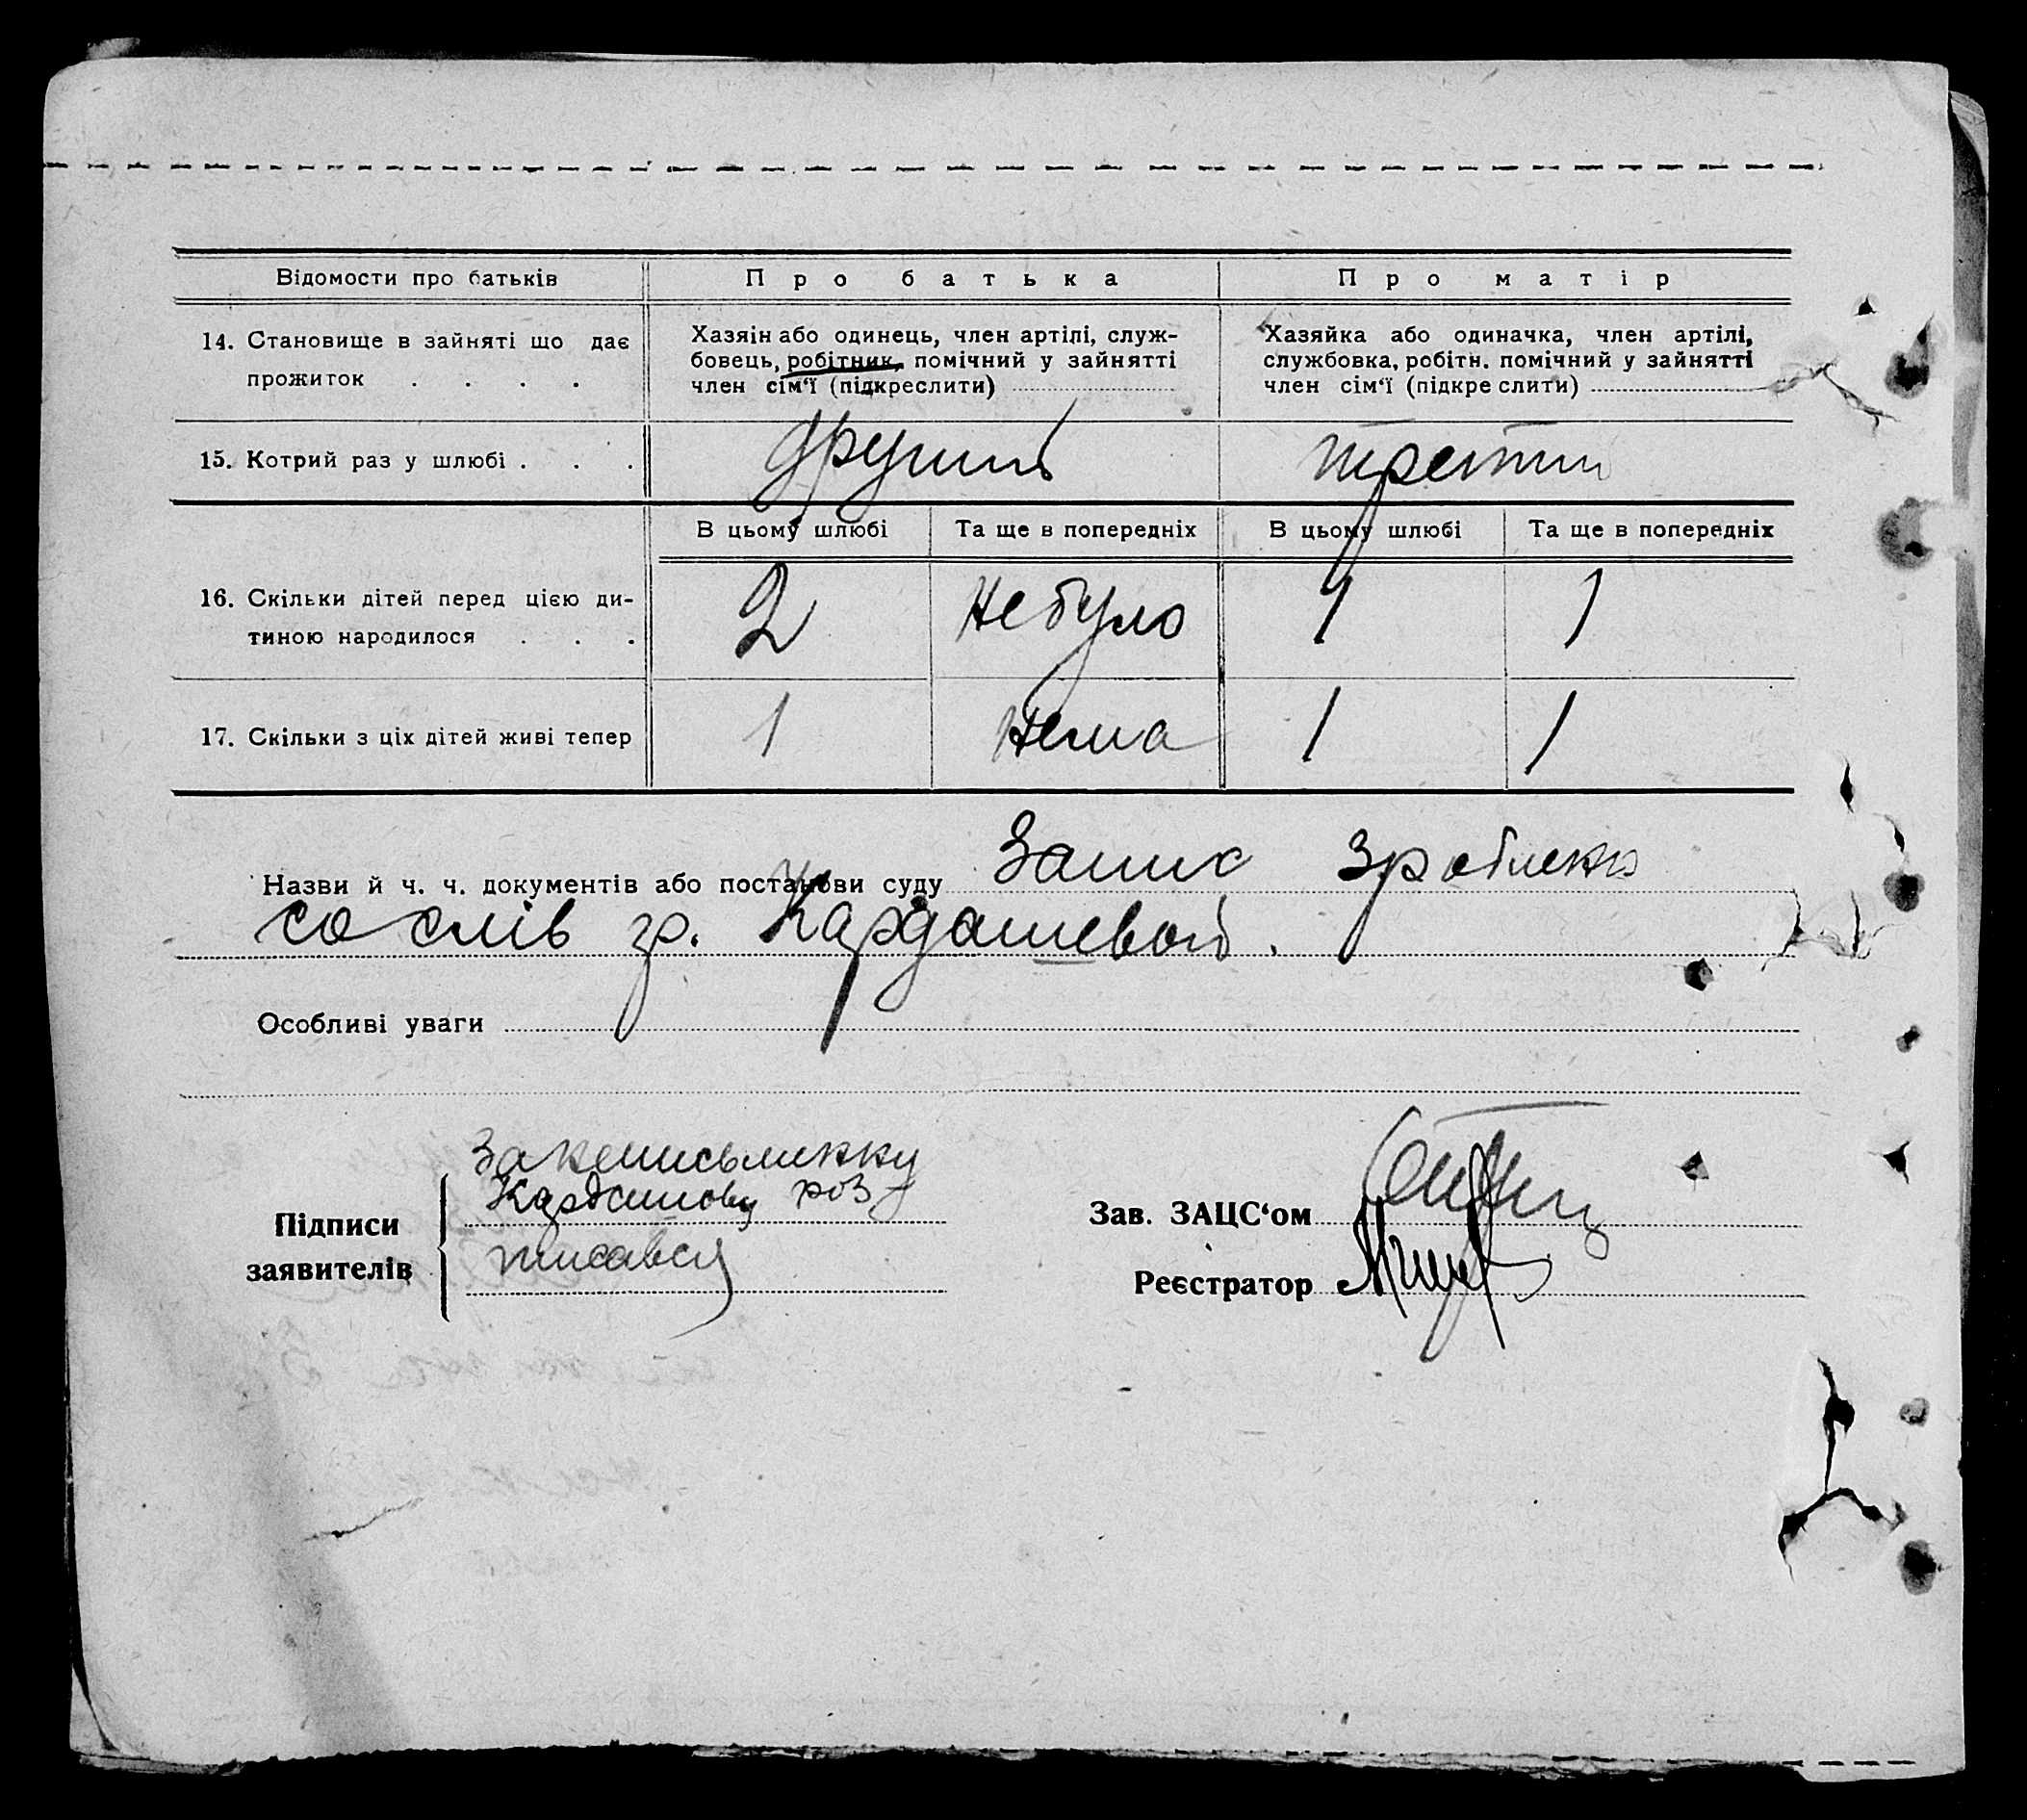 Відомости про батьків Про батька Про матір
14. Становище в зайняті що дає
прожиток . . . .
Хазяін або одинець, член артілі, служ-
бовець, робітник, помічний у зайнятті
член сім‘ї (підкреслити)
Хазяйка або одиначка, член артілі,
службовка, робітн. помічний у зайнятті
член сім‘ї (підкре слити)
15. Котрий раз у шлюбі . . . другий третий
В цьому шлюбі Та ще в попередніх В цьому шлюбі Та ще в попередніх
16. Скільки дітей перед цією ди-
тиною народилося . . .
2 небуло 1 1
17. Скільки з ціх дітей живі тепер 1 нема 1 1
Назви й ч. ч. документів або постанови суду Запис зроблено
со слів гр. Кардашевой.
Особливі уваги
За неписьменну
Кардашову роз
Підписи
заявителів
писався
Зав. ЗАЦС‘ом
Реєстратор